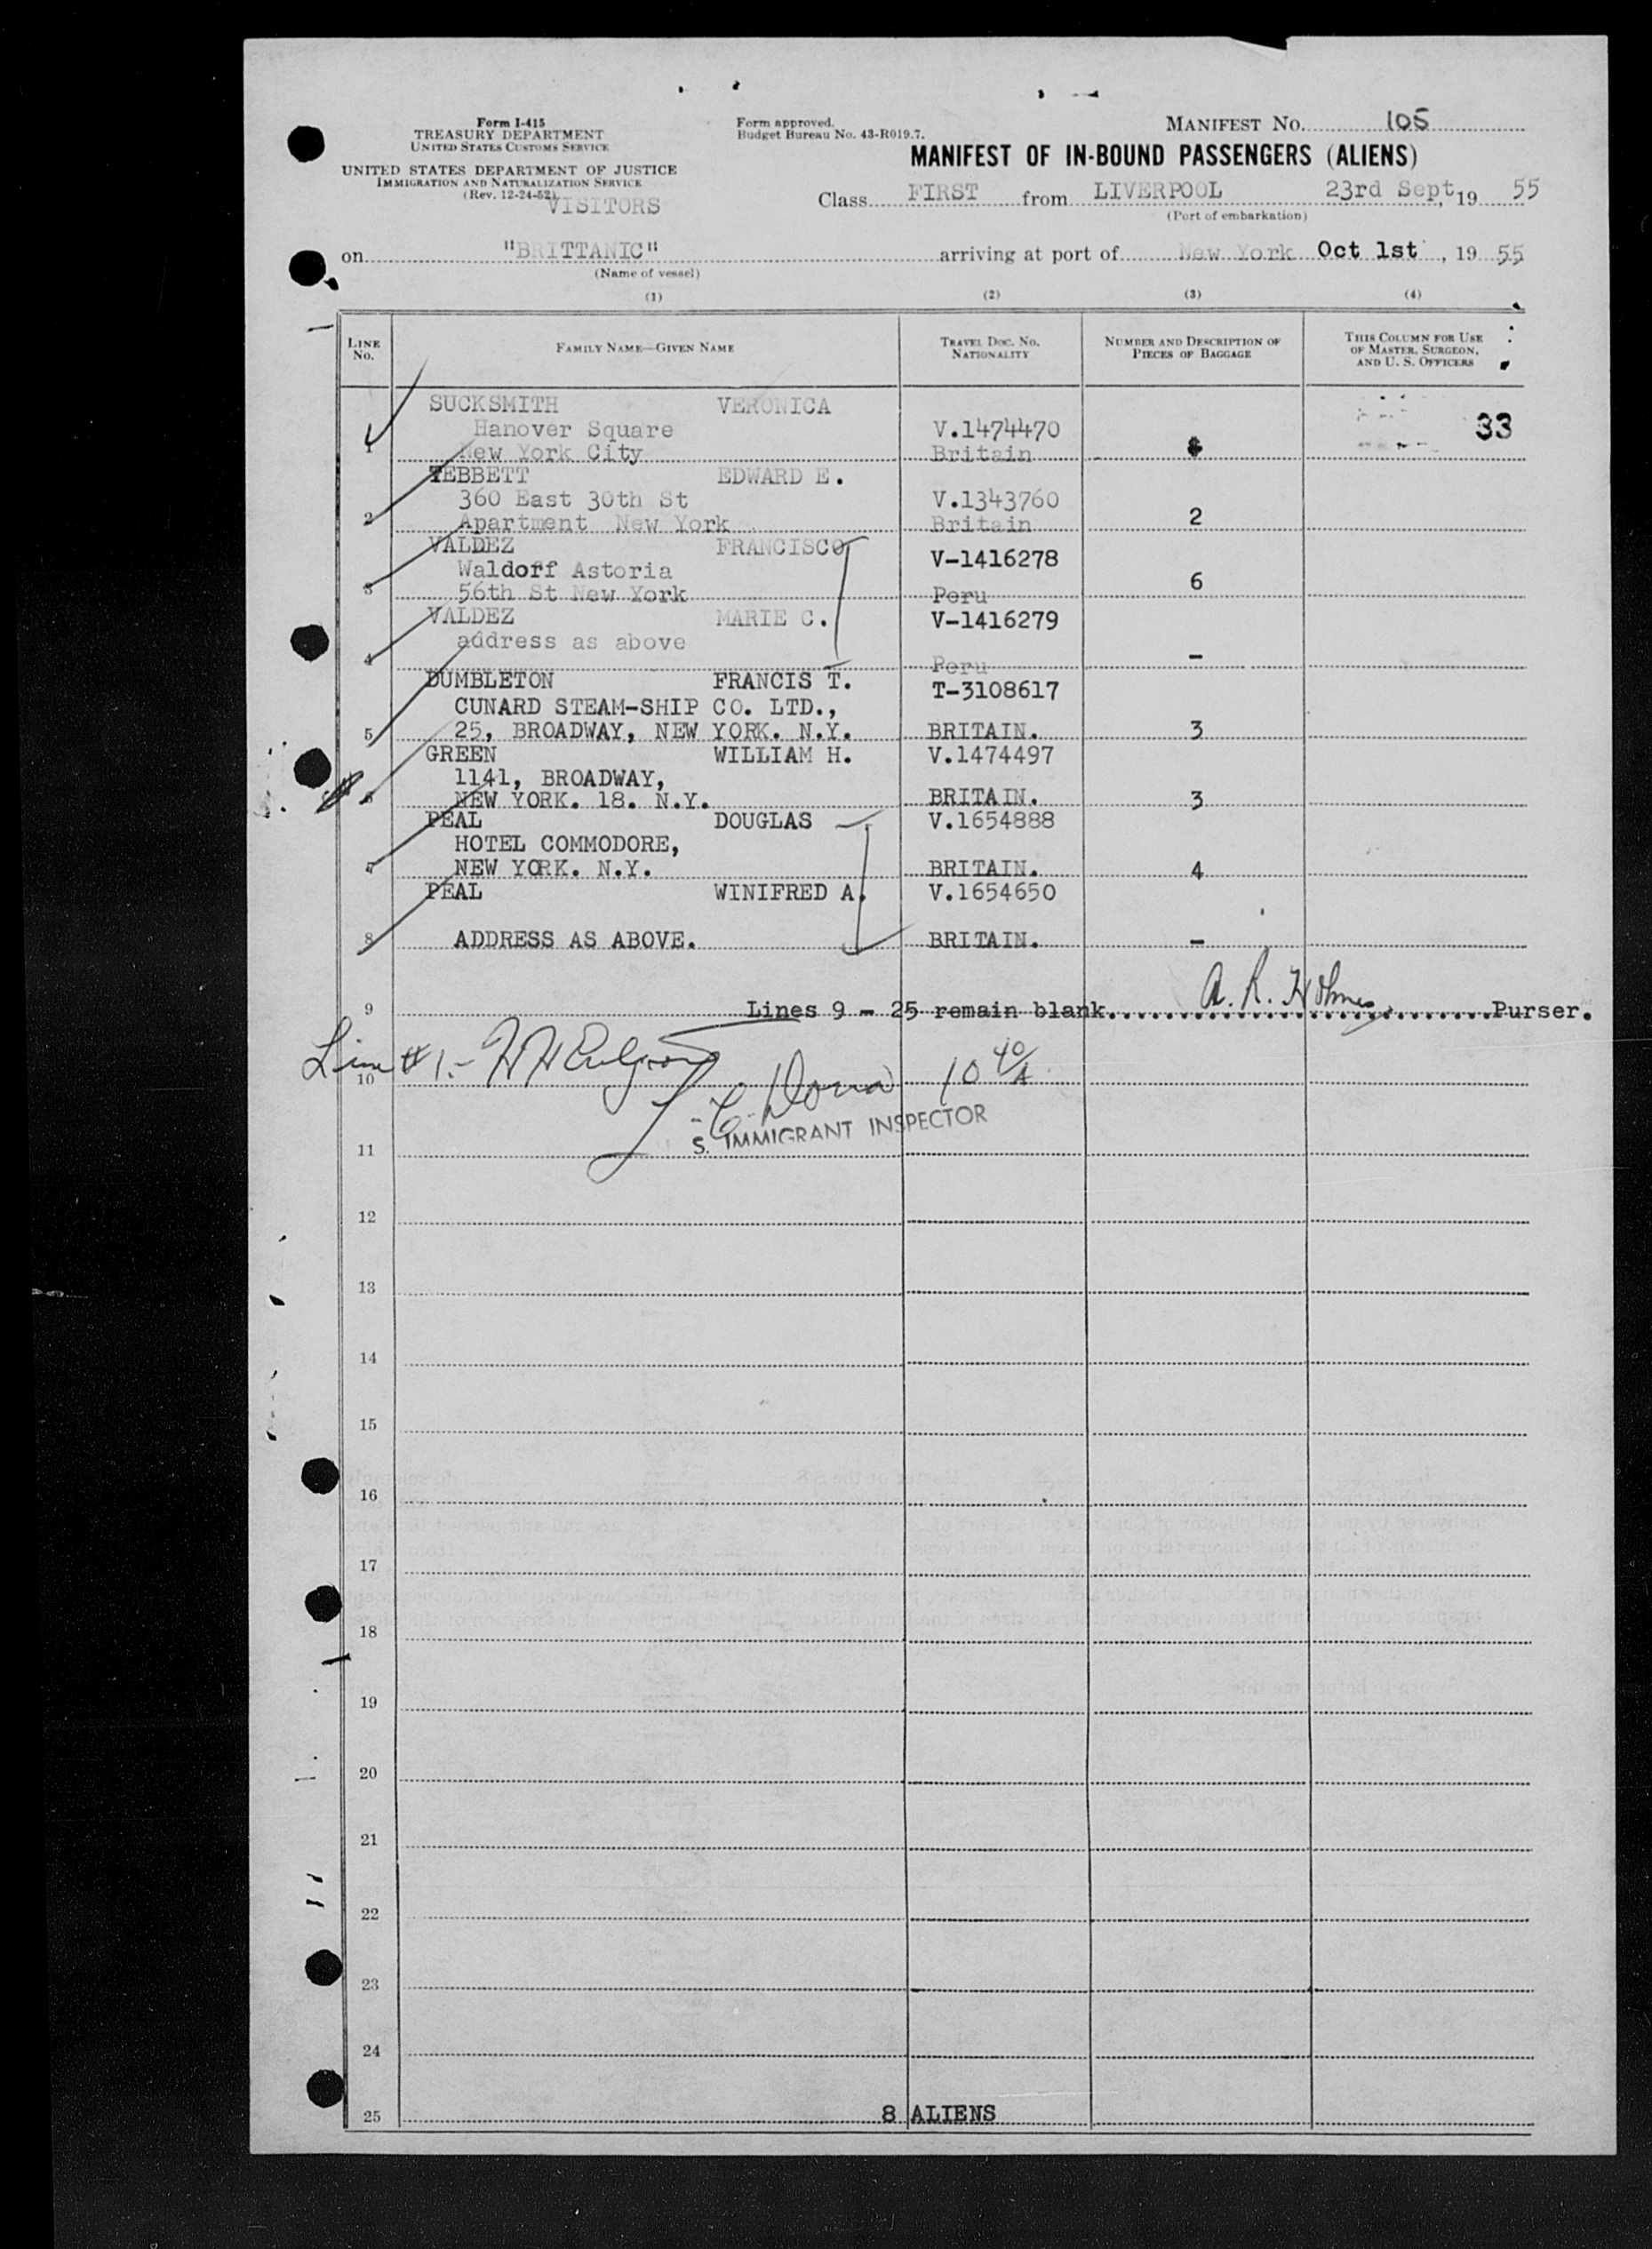 Form I-415
TREASURY DEPARTMENT
UNITED STATES CUSTOMS SERVICE
UNITED STATES DEPARTMENT OF JUSTICE
IMMIGRATION AND NATURALIZATION SERVICE
(Rev. 12-24-52)
VISITORS
Form approved.
Budget Bureau No. 43-R019.7.
MANIFEST No. 105
MANIFEST OF IN-BOUND PASSENGERS (ALIENS)
Class FIRST from LIVERPOOL 23rd Sept, 19 55
(Port of embarkation)
on "BRITTANIC" arriving at port of New York Oct 1st, 19 55
(Name of vessel)
(1) (2) (3) (4)
LINE No. FAMILY NAME—GIVEN NAME TRAVEL DOC. NO. NATIONALITY NUMBER AND DESCRIPTION OF PIECES OF BAGGAGE THIS COLUMN FOR USE OF MASTER, SURGEON, AND U. S. OFFICERS
SUCKSMITH VERONICA
Hanover Square V.1474470 33
1 New York City Britain
TEBBETT EDWARD E.
360 East 30th St V.1343760
2 Apartment New York Britain 2
VALDEZ FRANCISCO V-1416278
Waldorf Astoria
3 56th St New York Peru 6
VALDEZ MARIE C. V-1416279
address as above
4 Peru -
DUMBLETON FRANCIS T. T-3108617
CUNARD STEAM-SHIP CO. LTD.,
5 25, BROADWAY, NEW YORK. N.Y. BRITAIN. 3
GREEN WILLIAM H. V.1474497
1141, BROADWAY,
6 NEW YORK. 18. N.Y. BRITAIN. 3
PEAL DOUGLAS V.1654888
HOTEL COMMODORE,
7 NEW YORK. N.Y. BRITAIN. 4
PEAL WINIFRED A. V.1654650
8 ADDRESS AS ABOVE. BRITAIN. -
9 Lines 9 - 25 remain blank. A. R. Holmes Purser.
Line # 1.-
10 10 40/A
S. IMMIGRANT INSPECTOR
11
12
13
14
15
16
17
18
19
20
21
22
23
24
25 8 ALIENS